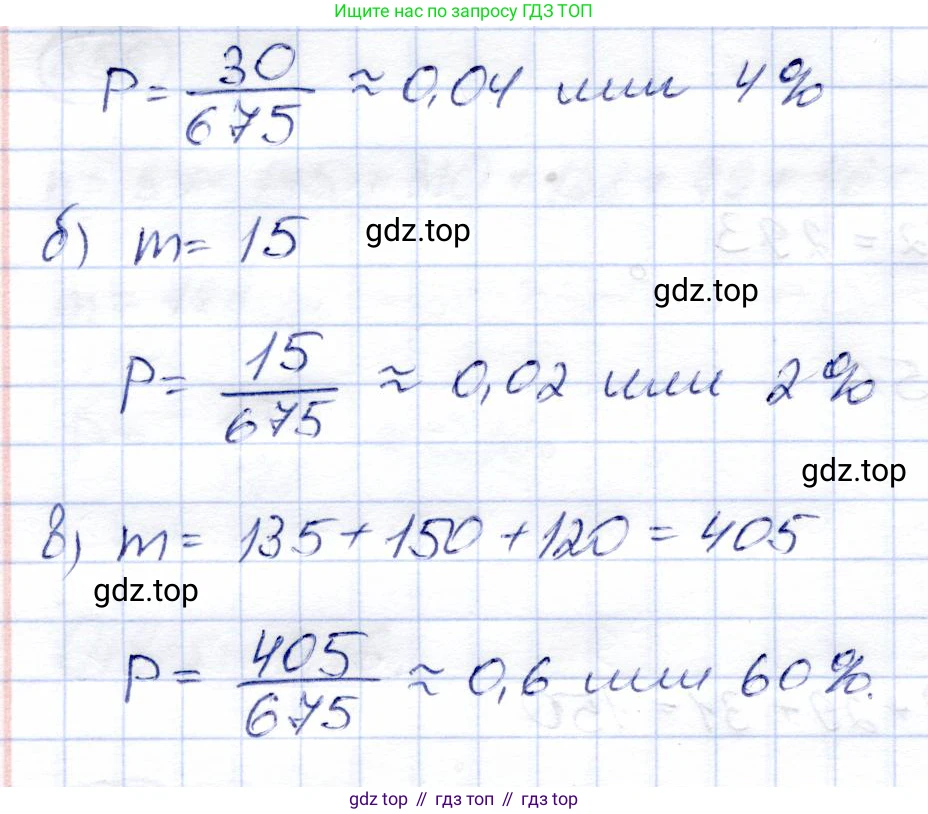 Ищите нас по запросу ГДЗ ТОП
P = 30/675 ≈ 0,04 или 4%
б) m = 15
gdz.top
gdz.top
P = 15/675 ≈ 0,02 или 2%
gdz.top
в) m = 135 + 150 + 120 = 405
gdz.top
P = 405/675 ≈ 0,6 или 60%.
gdz top // гдз топ // gdz top